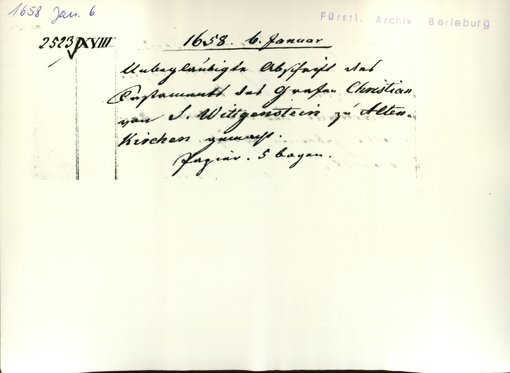 1658 Jan. 6
Fürstl. Archiv Berleburg
2523 XVIII
1658. 6. Januar
Unbeglaubigte Abschrift des
Testaments des Grafen Christian
von S. Wittgenstein zu Alten-
kirchen gemacht.
Papier. 5 bogen.